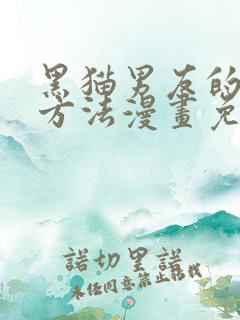 黑猫男友的
方法漫畫免
諾切里諾
未任同意禁止轉載